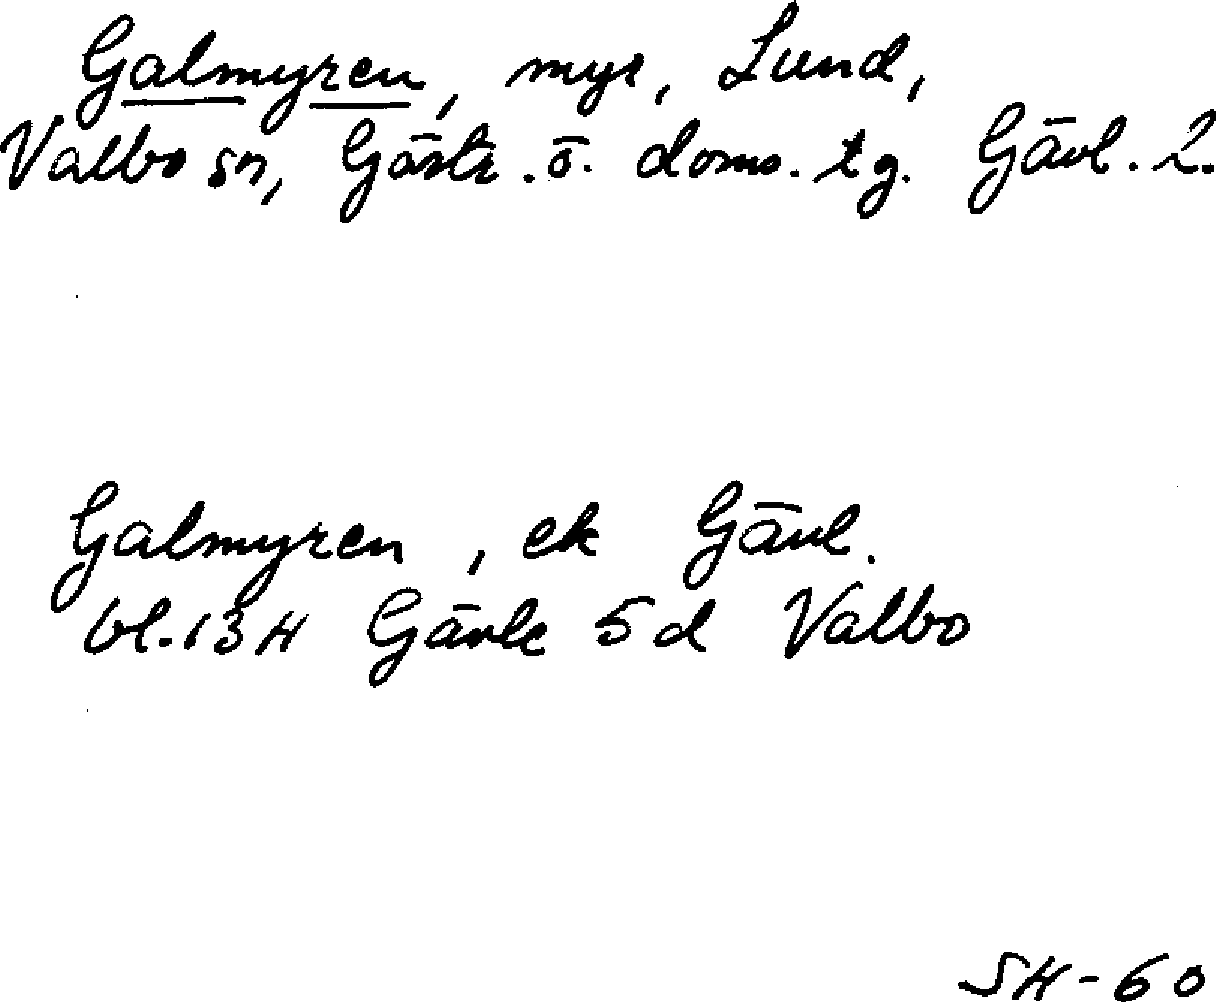 Galmyren, myr, Lund,
Valbo sn, Gästr. ö. doms. tg. Gävl. l.
Galmyren, ek Gävl.
bl. 13H Gävle 5d Valbo
SH-60